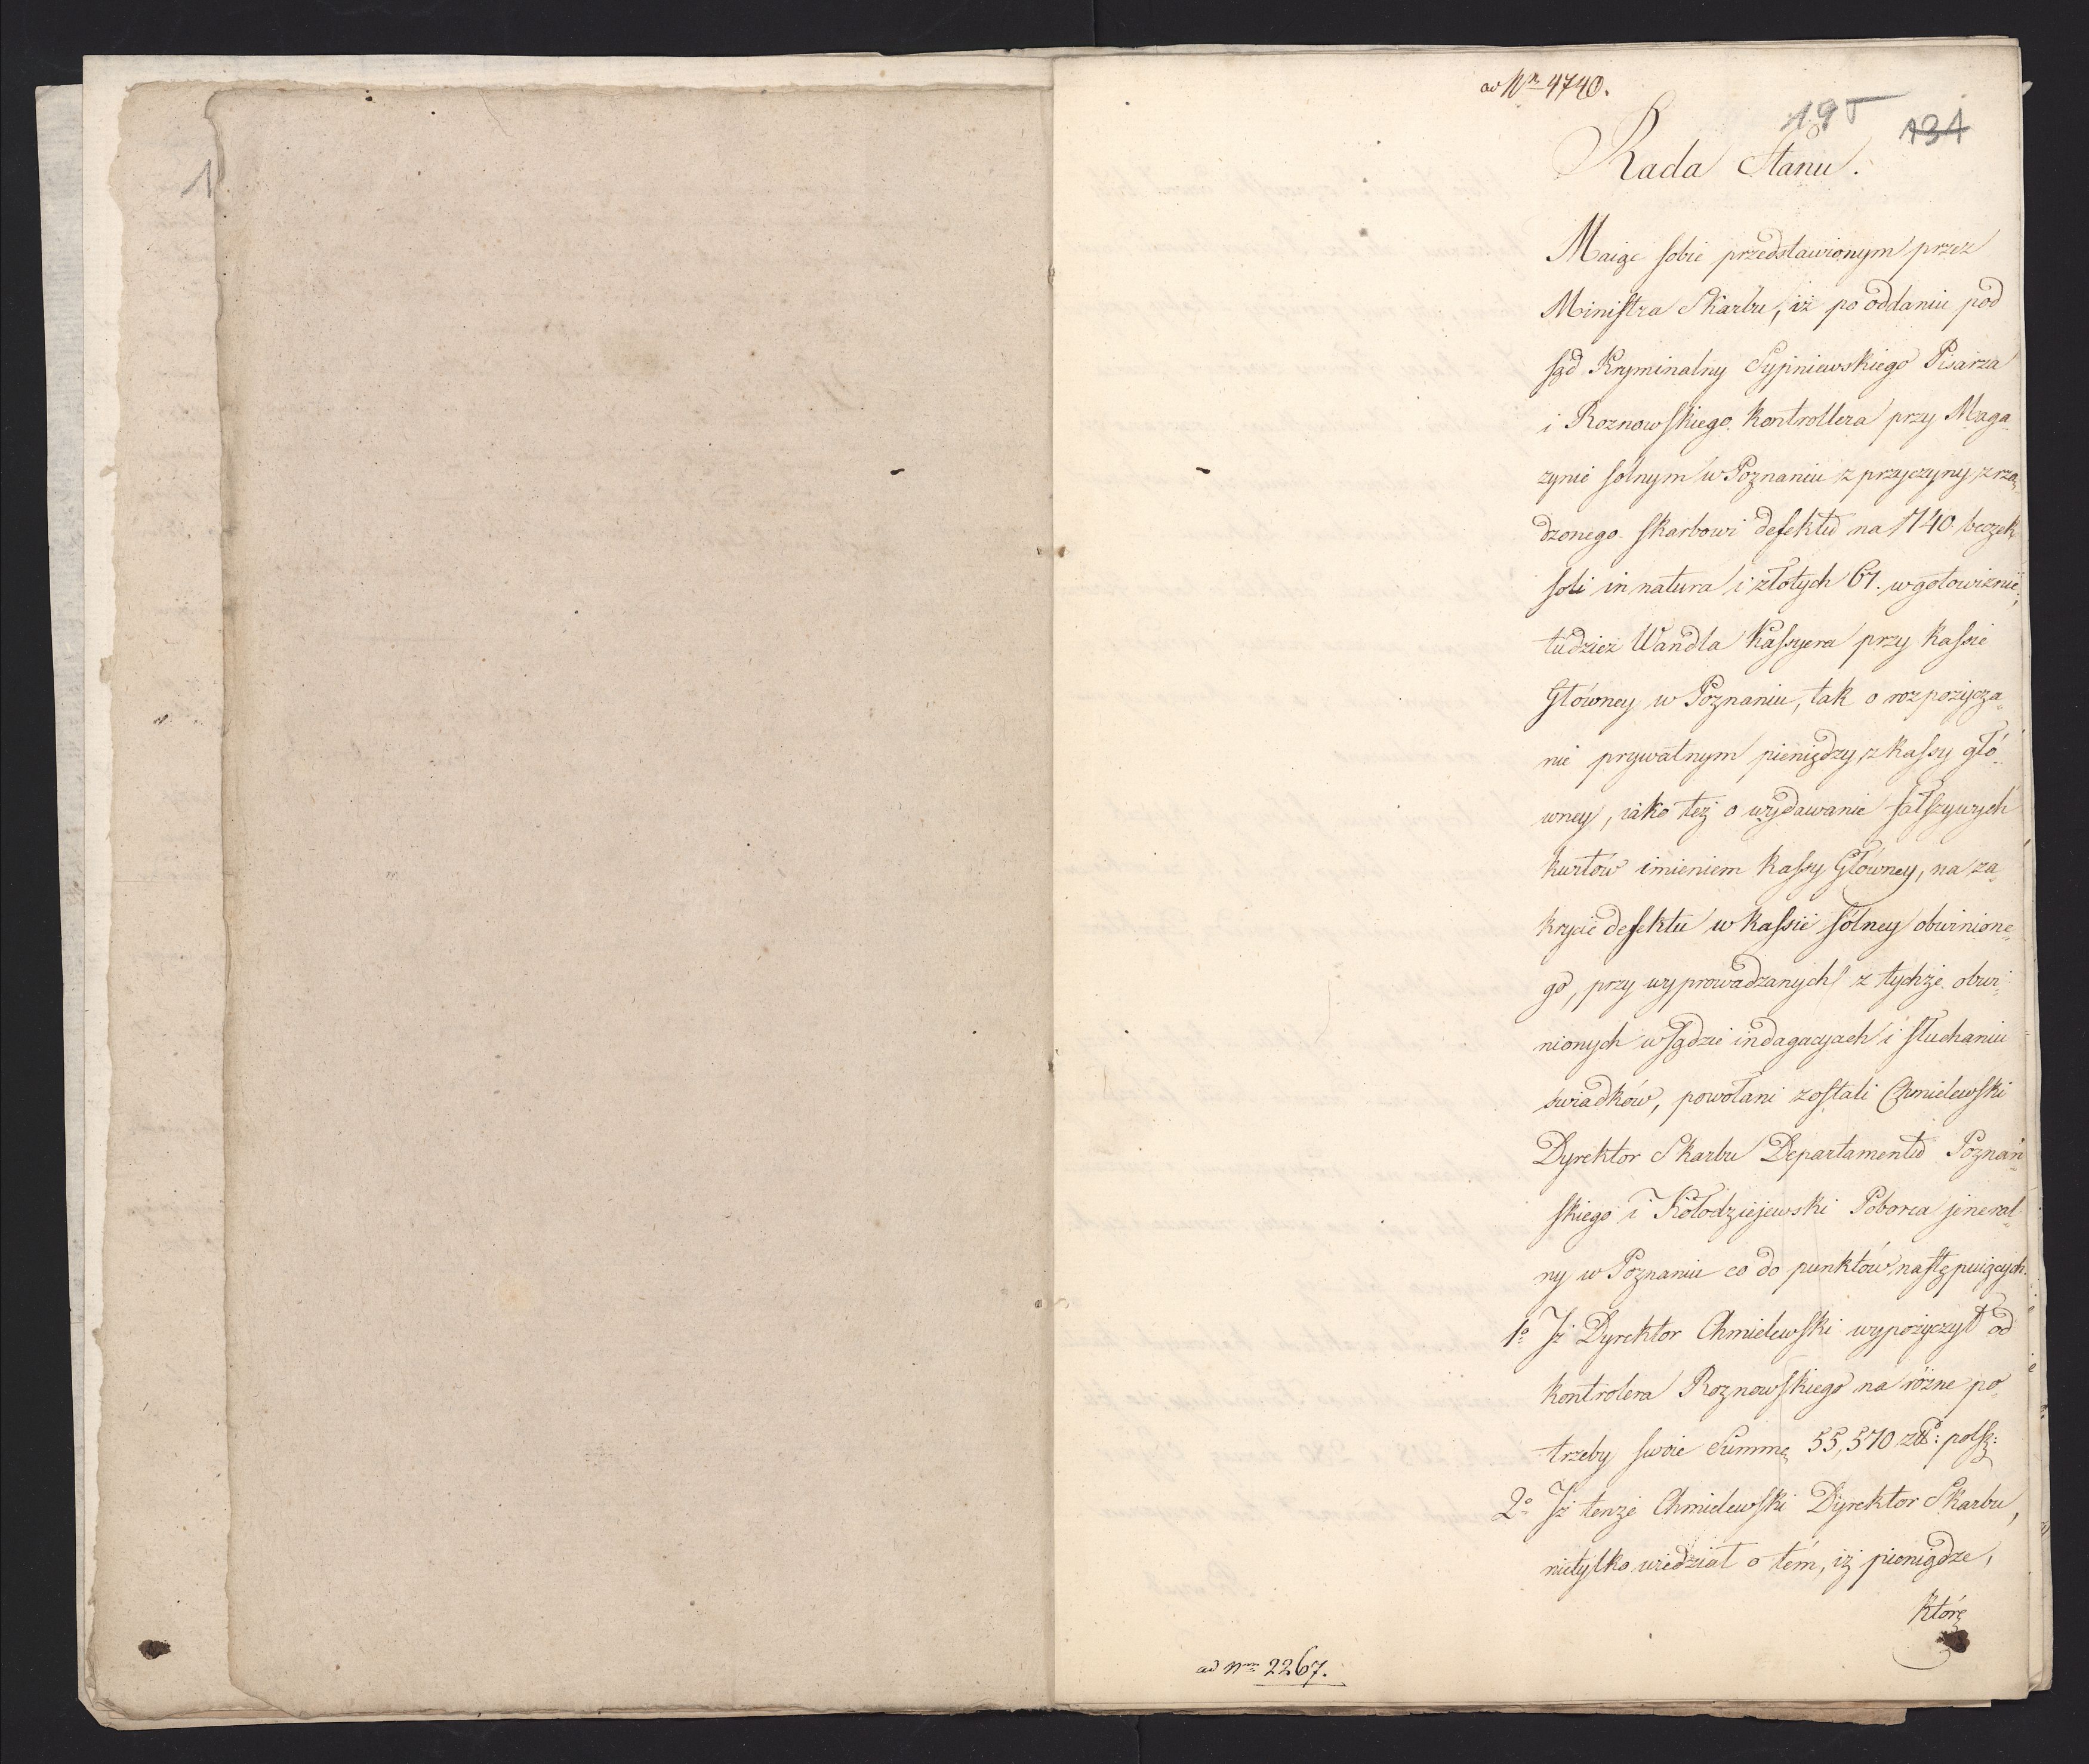 ad Nr 4740.
195 131
Rada Stanu.
Maiąc sobie przedstawionym przez
Ministra Skarbu, iż po oddaniu pod
sąd Kryminalny Sypniewskiego Pisarza
i Roznowskiego Kontrollera przy Maga-
zynie solnym w Poznaniu z przyczyny zrzą-
dzonego skarbowi defektu na 1740 beczek
soli in natura i złotych 61. w gotowiznie;
tudzież Wandla Kassyera przy Kassie
Główney w Poznaniu, tak o rozpożycza-
nie prywatnym pieniędzy z kassy głó-
wney, iako też o wydawanie fałszywych
kwitów imieniem Kassy Główney, na za-
krycie defektu w kassie solney obwinione-
go, przy wyprowadzanych z tychże obwi-
nionych w sądzie indagacyach i słuchaniu
świadków, powołani zostali Chmielewski
Dyrektor Skarbu Departamentu Poznań-
skiego i Kołodziejewski Poborca jeneral-
ny w Poznaniu co do punktów następuiących.
1o Iż Dyrektor Chmielewski wypożyczył od
kontrolera Roznowskiego na różne po-
trzeby swoie Summę 55,570 złł: polsk:
2o Iż tenże Chmielewski Dyrektor Skarbu,
nietylko wiedział o tém, iż pieniądze,
które
ad Nrm 2267.
1